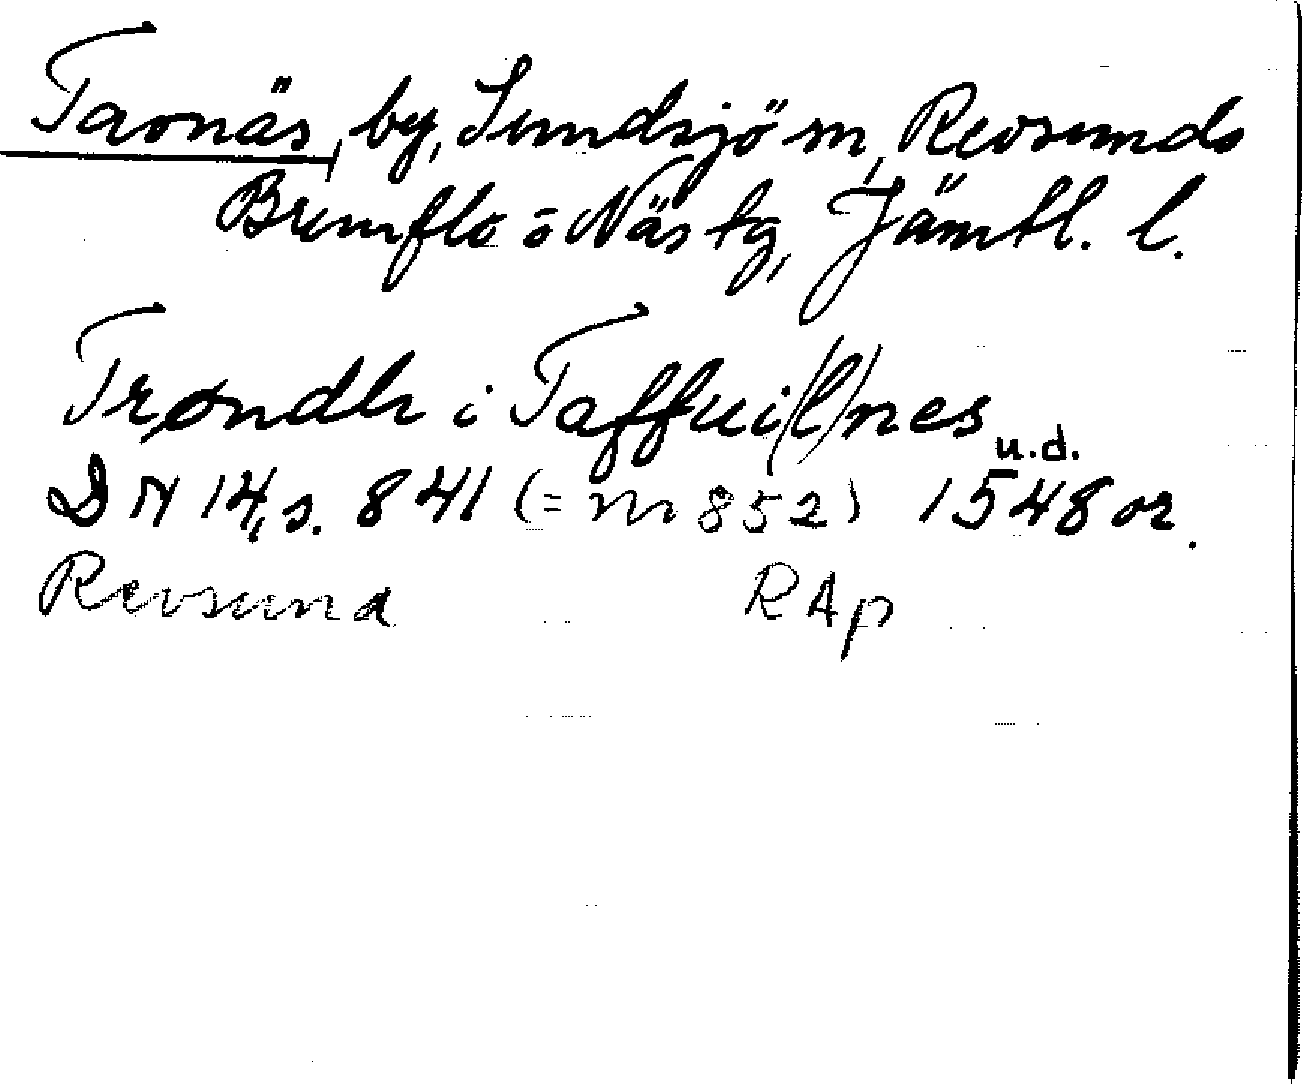 Tavnäs, by, Sundsjö sn, Revsunds
Brunflo o Näs tg, Jämtl. l.
Trøndh i Taffui(l)nes
u.d.
DN 14, s. 841 (= nr 852) 1548 or.
Revsund RAp